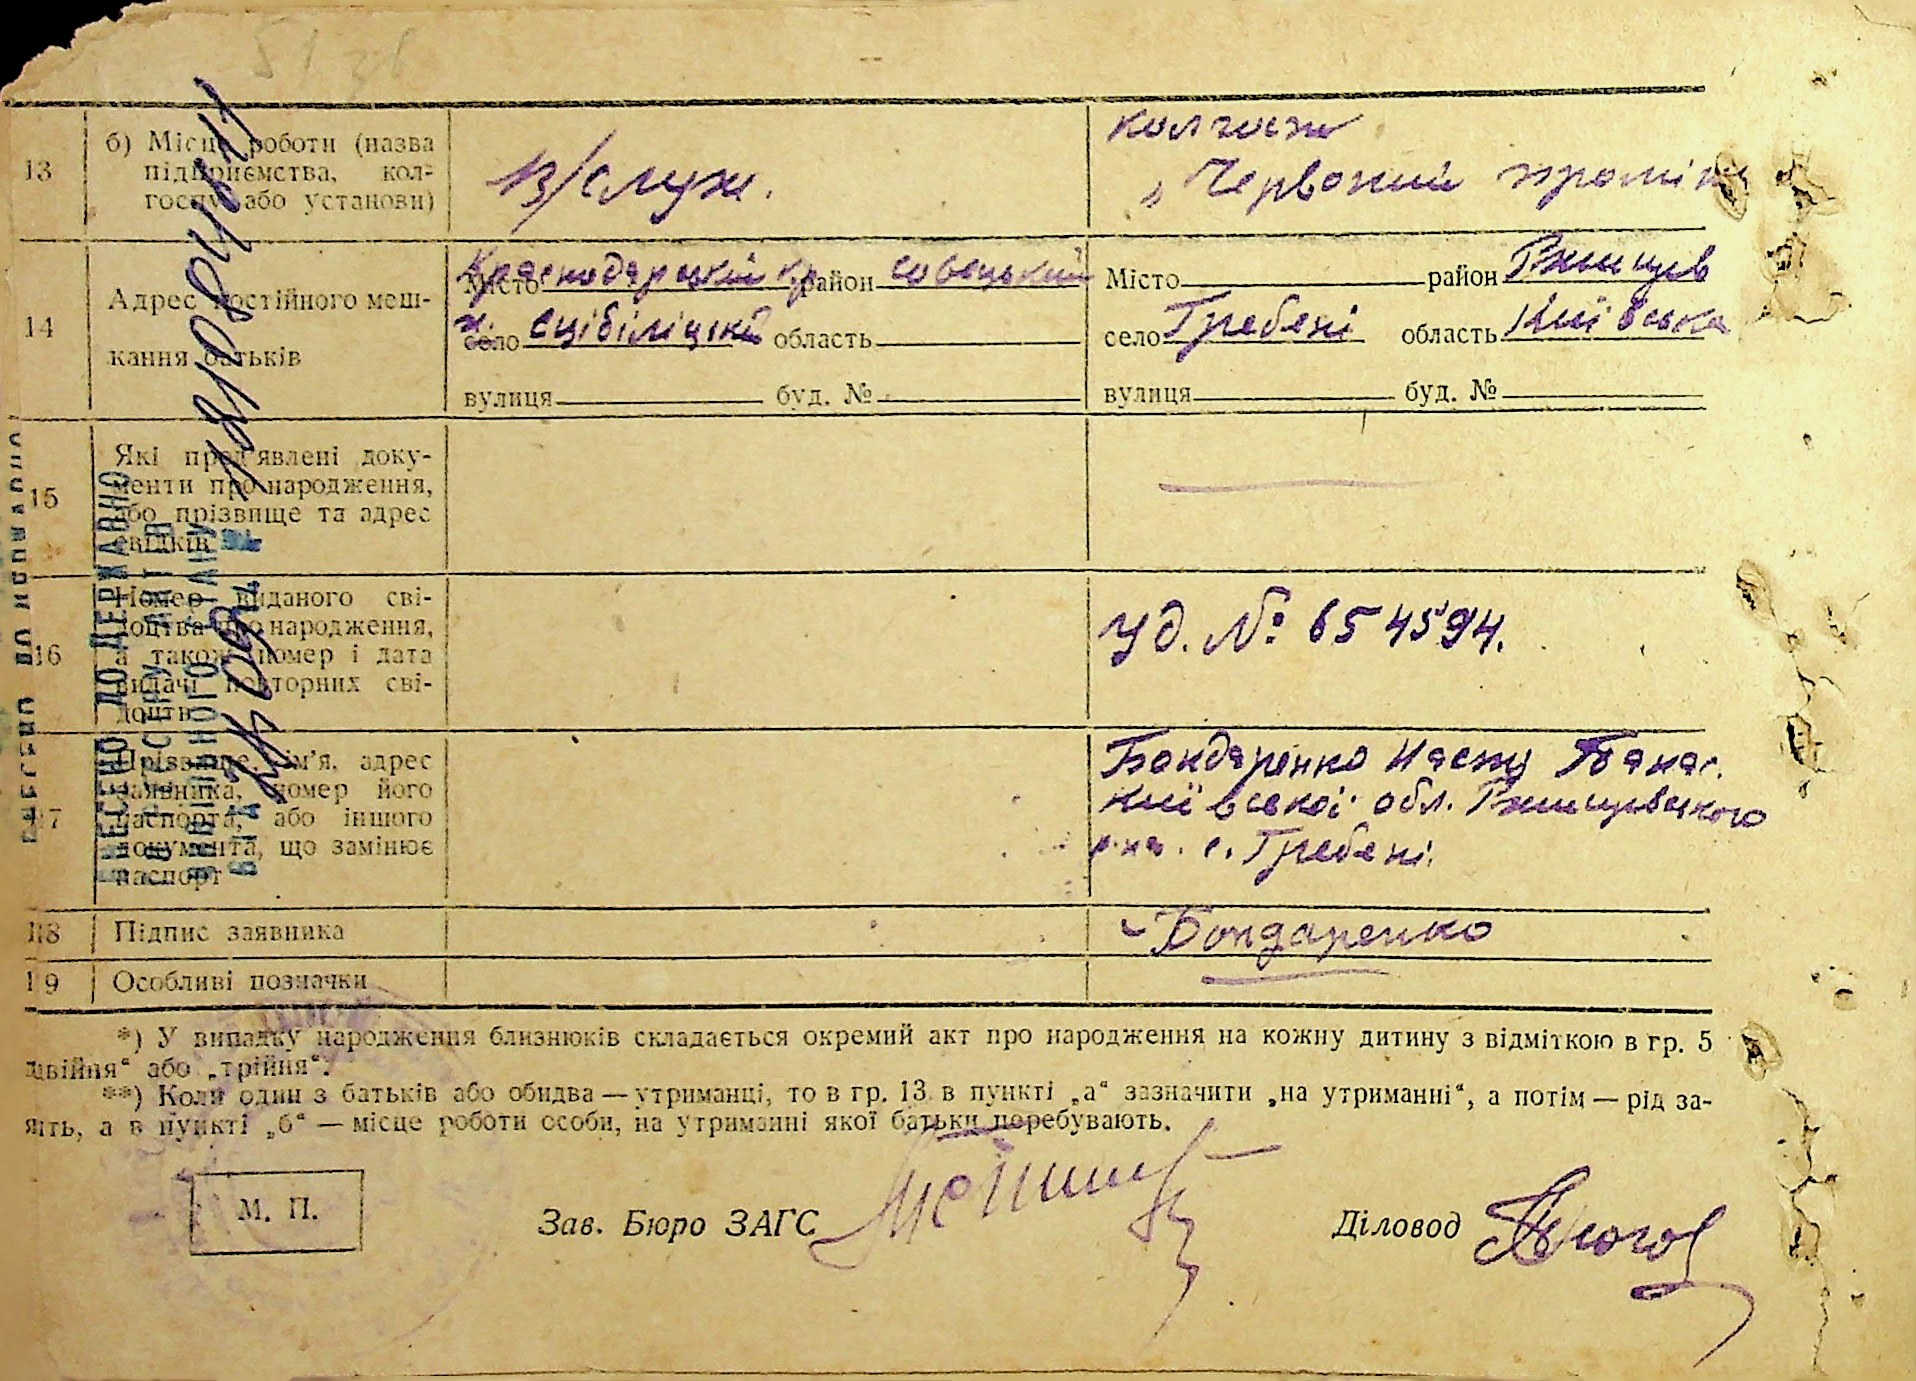 13
б) Місце роботи (назва
підприємства, кол-
госпу або установи)
В/служ.
колгосп
„Червоний промінь
14
Адрес постійного меш-
кання батьків
Краснодарський кр
Місто район совецький
х. село область
вулиця буд. №
Місто район Ржищів
село Гребені область Київська
вулиця буд. №
15
Які пред'явлені доку-
менти про народження,
або прізвище та адрес
свідків
16
Номер виданого сві-
доцтва про народження,
а також номер і дата
видачі повторних сві-
доцтв
Уд. № 654594.
17
Прізвище, ім'я, адрес
заявника, номер його
паспорта, або іншого
документа, що замінює
паспорт
Бондаренко
Київської обл. Ржищівського
р-на. с. Гребені.
18
Підпис заявника
Бондаренко
19
Особливі позначки
*) У випадку народження близнюків складається окремий акт про народження на кожну дитину з відміткою в гр. 5
„двійня“ або „трійня“.
**) Коли один з батьків або обидва — утриманці, то в гр. 13 в пункті „а“ зазначити „на утриманні“, а потім — рід за-
нять, а в пункті „б“ — місце роботи особи, на утриманні якої батьки перебувають.
М. П.
Зав. Бюро ЗАГС
Діловод
ВНЕСЕНО ДО ДЕРЖАВНОГО
РЕЄСТРУ АКТІВ
ЦИВІЛЬНОГО СТАНУ